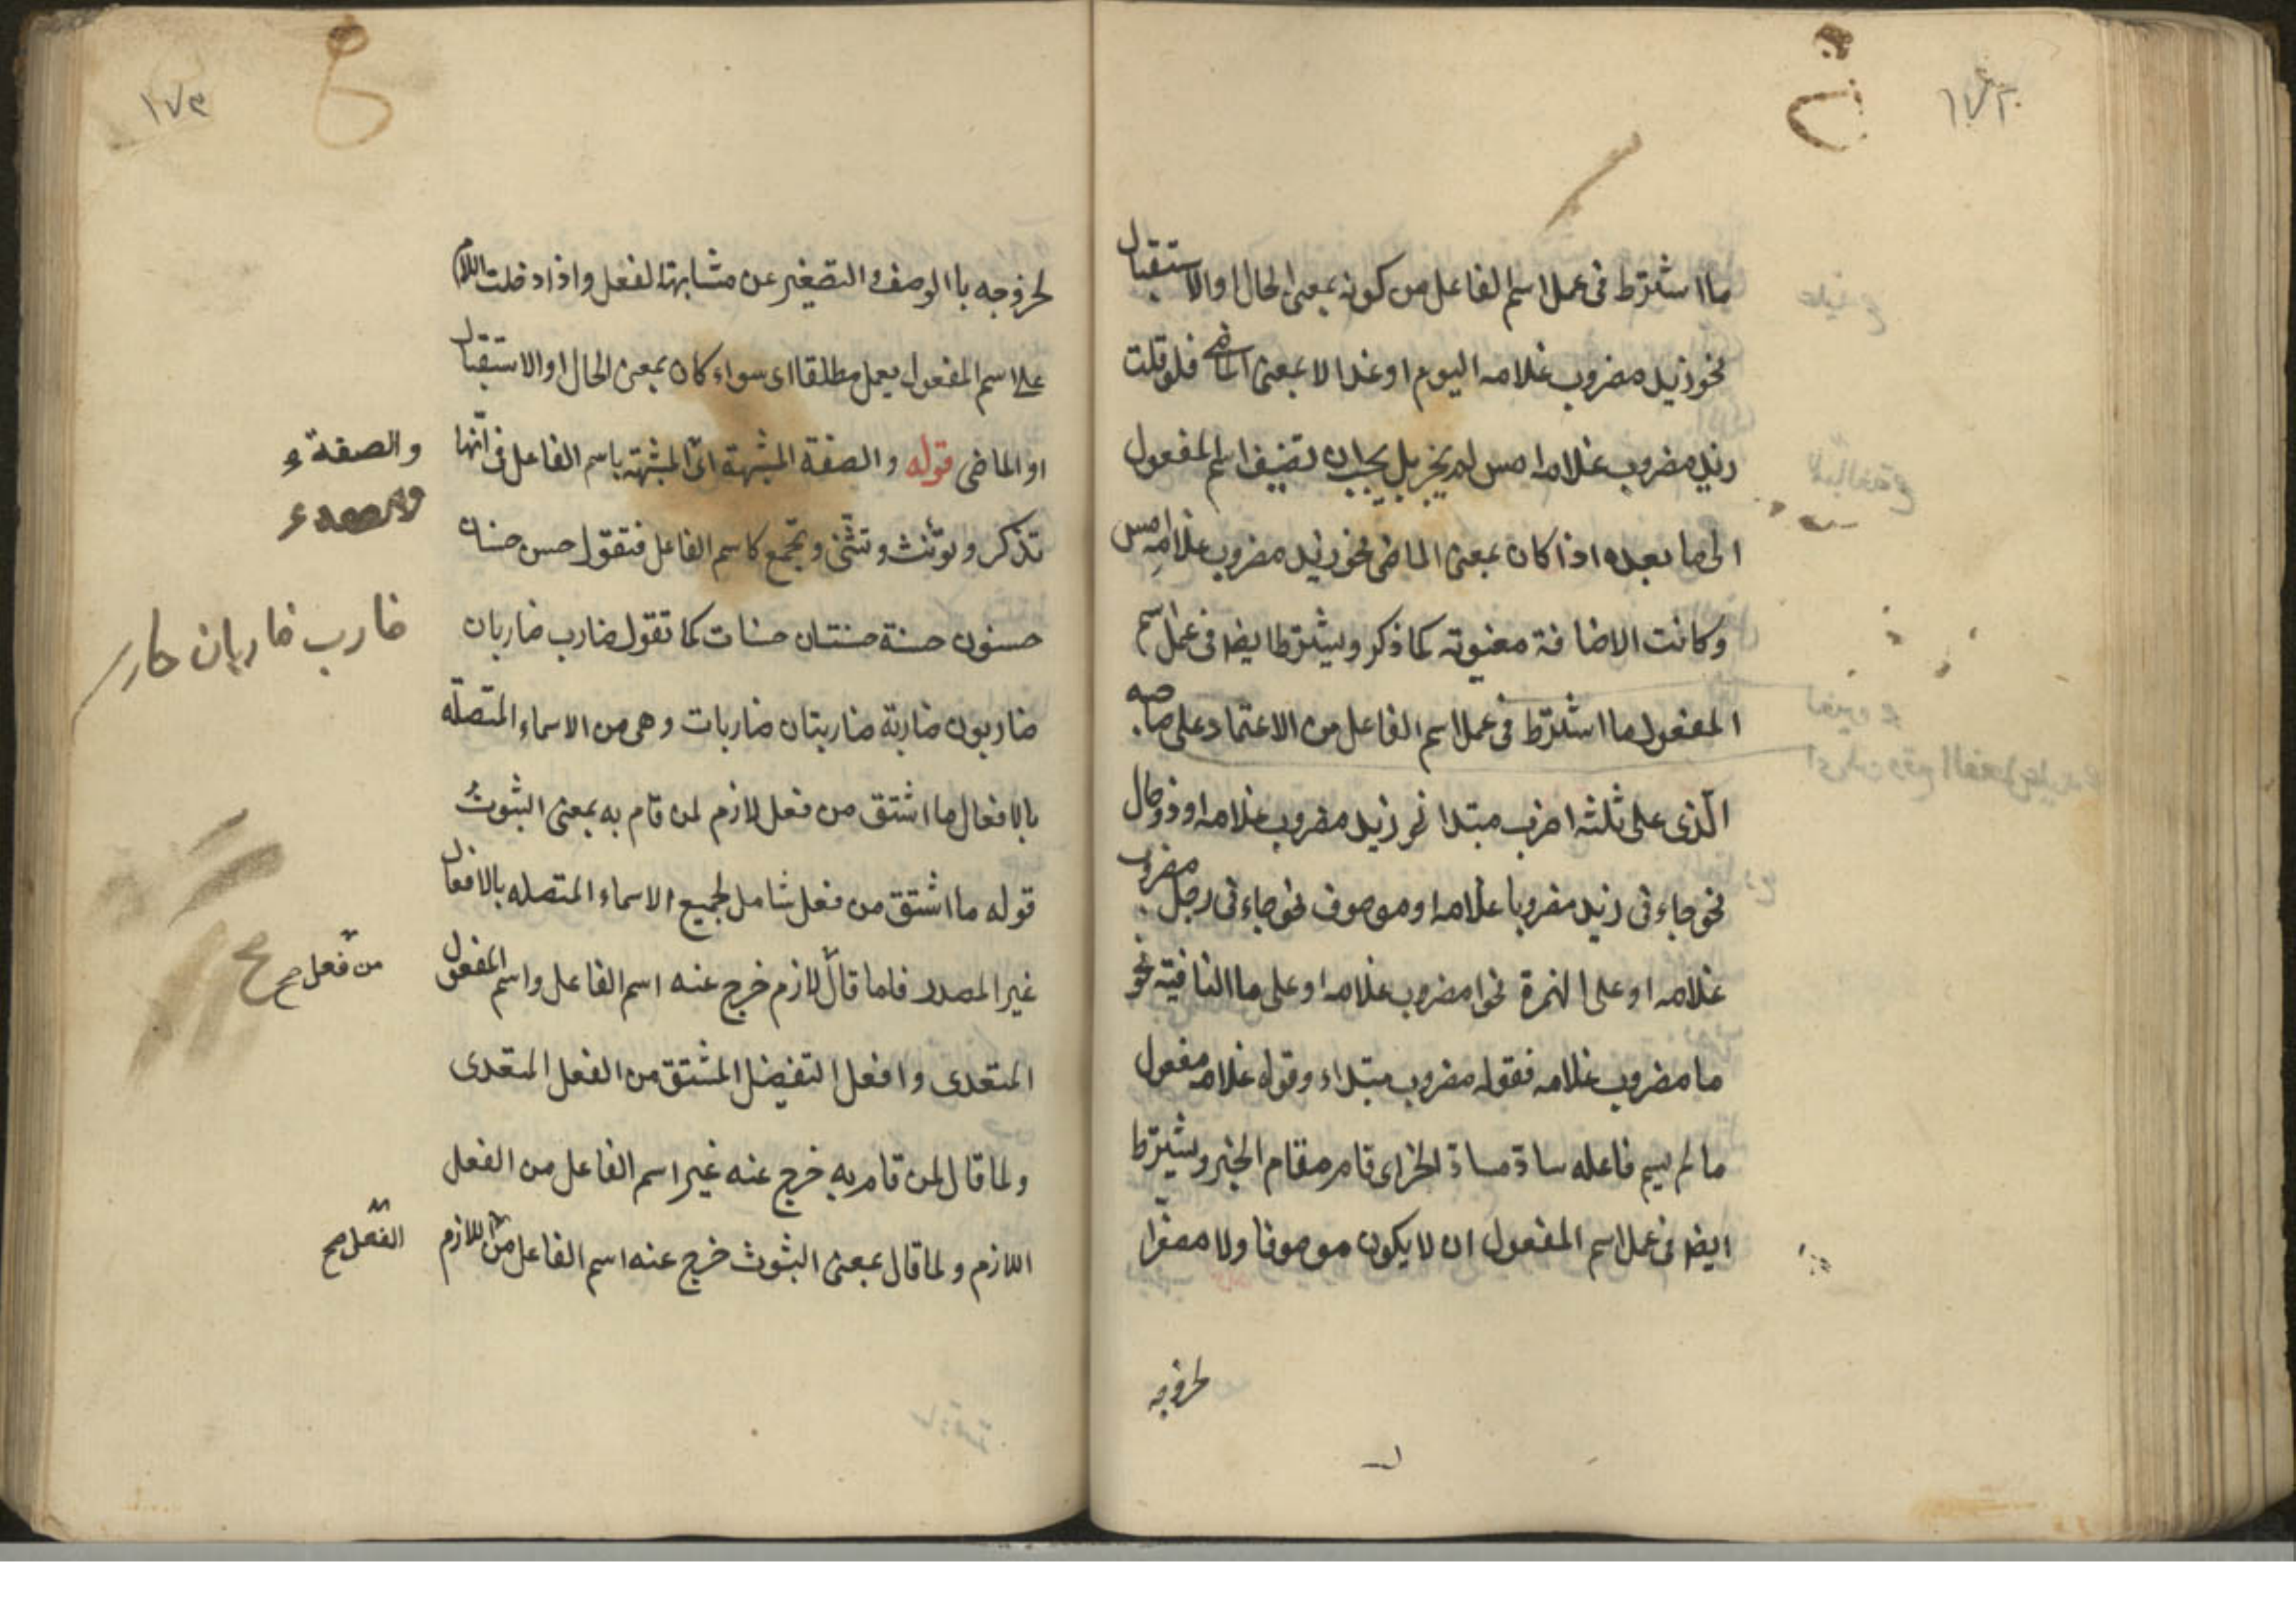 ما اشترط فى عمل اسم الفاعل من كونه بمعنى الحال او الاستقبال
نحو زيد مضروب غلامه اليوم او غدا لا بمعنى الماضى فلو قلت
زيد مضروب غلامه امس لم يجز بل يجب ان تضيف اسم المفعول
الى ما بعده اذا كان بمعنى الماضى نحو زيد مضروب غلامه امس
وكانت الاضافة معنوية كما ذكر ويشترط ايضا فى عمل اسم
المفعول ما اشترط فى عمل اسم الفاعل من الاعتماد على صاحبه
الّذى على ثلثه اضرب مبتدا نحو زيد مضروب غلامه او ذو حال
نحو جاءنى زيد مضروبا غلامه او موصوف نحو جاءنى رجل مضروب
غلامه او على الهمزة نحو امضروب غلامه او على ما النافية نحو
ما مضروب غلامه فقوله مضروب مبتداء وقوله غلامه مفعول
ما لم يسم فاعله سادّ مسادّ الخبر اى قام مقام الخبر ويشترط
ايضا فى عمل اسم المفعول ان لا يكون موصوفا ولا مصغّرا
لخروجه
١٧٣
لخروجه باالوصف و التصغير عن مشابهة الفعل واذا دخلت اللام
على اسم المفعول يعمل مطلقا اى سواء كان بمعنى الحال او الاستقبال
او الماضى قوله والصفة المشبهة اىّ المشبهة باسم الفاعل فى انّها
تذكر و تؤنث و تثنّى و تجمع كاسم الفاعل فتقول حسن حسنان
حسنون حسنة حسنتان حسنات كما تقول ضارب ضاربان
ضاربون ضاربة ضاربتان ضاربات وهى من الاسماء المتّصلّه
بالافعال ما اشتق من فعل لازم لمن قام به بمعنى الثبوت
قوله ما اشتق من فعل شامل لجميع الاسماء المتصله بالافعال
غير المصدر فلما قال لازم خرج عنه اسم الفاعل واسم المفعول
المتعدى وافعل التفضيل المشتق من الفعل المتعدى
ولما قال لمن قام به خرج عنه غير اسم الفاعل من الفعل
اللازم ولما قال بمعنى الثبوت خرج عنه اسم الفاعل من اللازم
والصفة
ضارب ضاربان
من فعل صح
الفعل صح